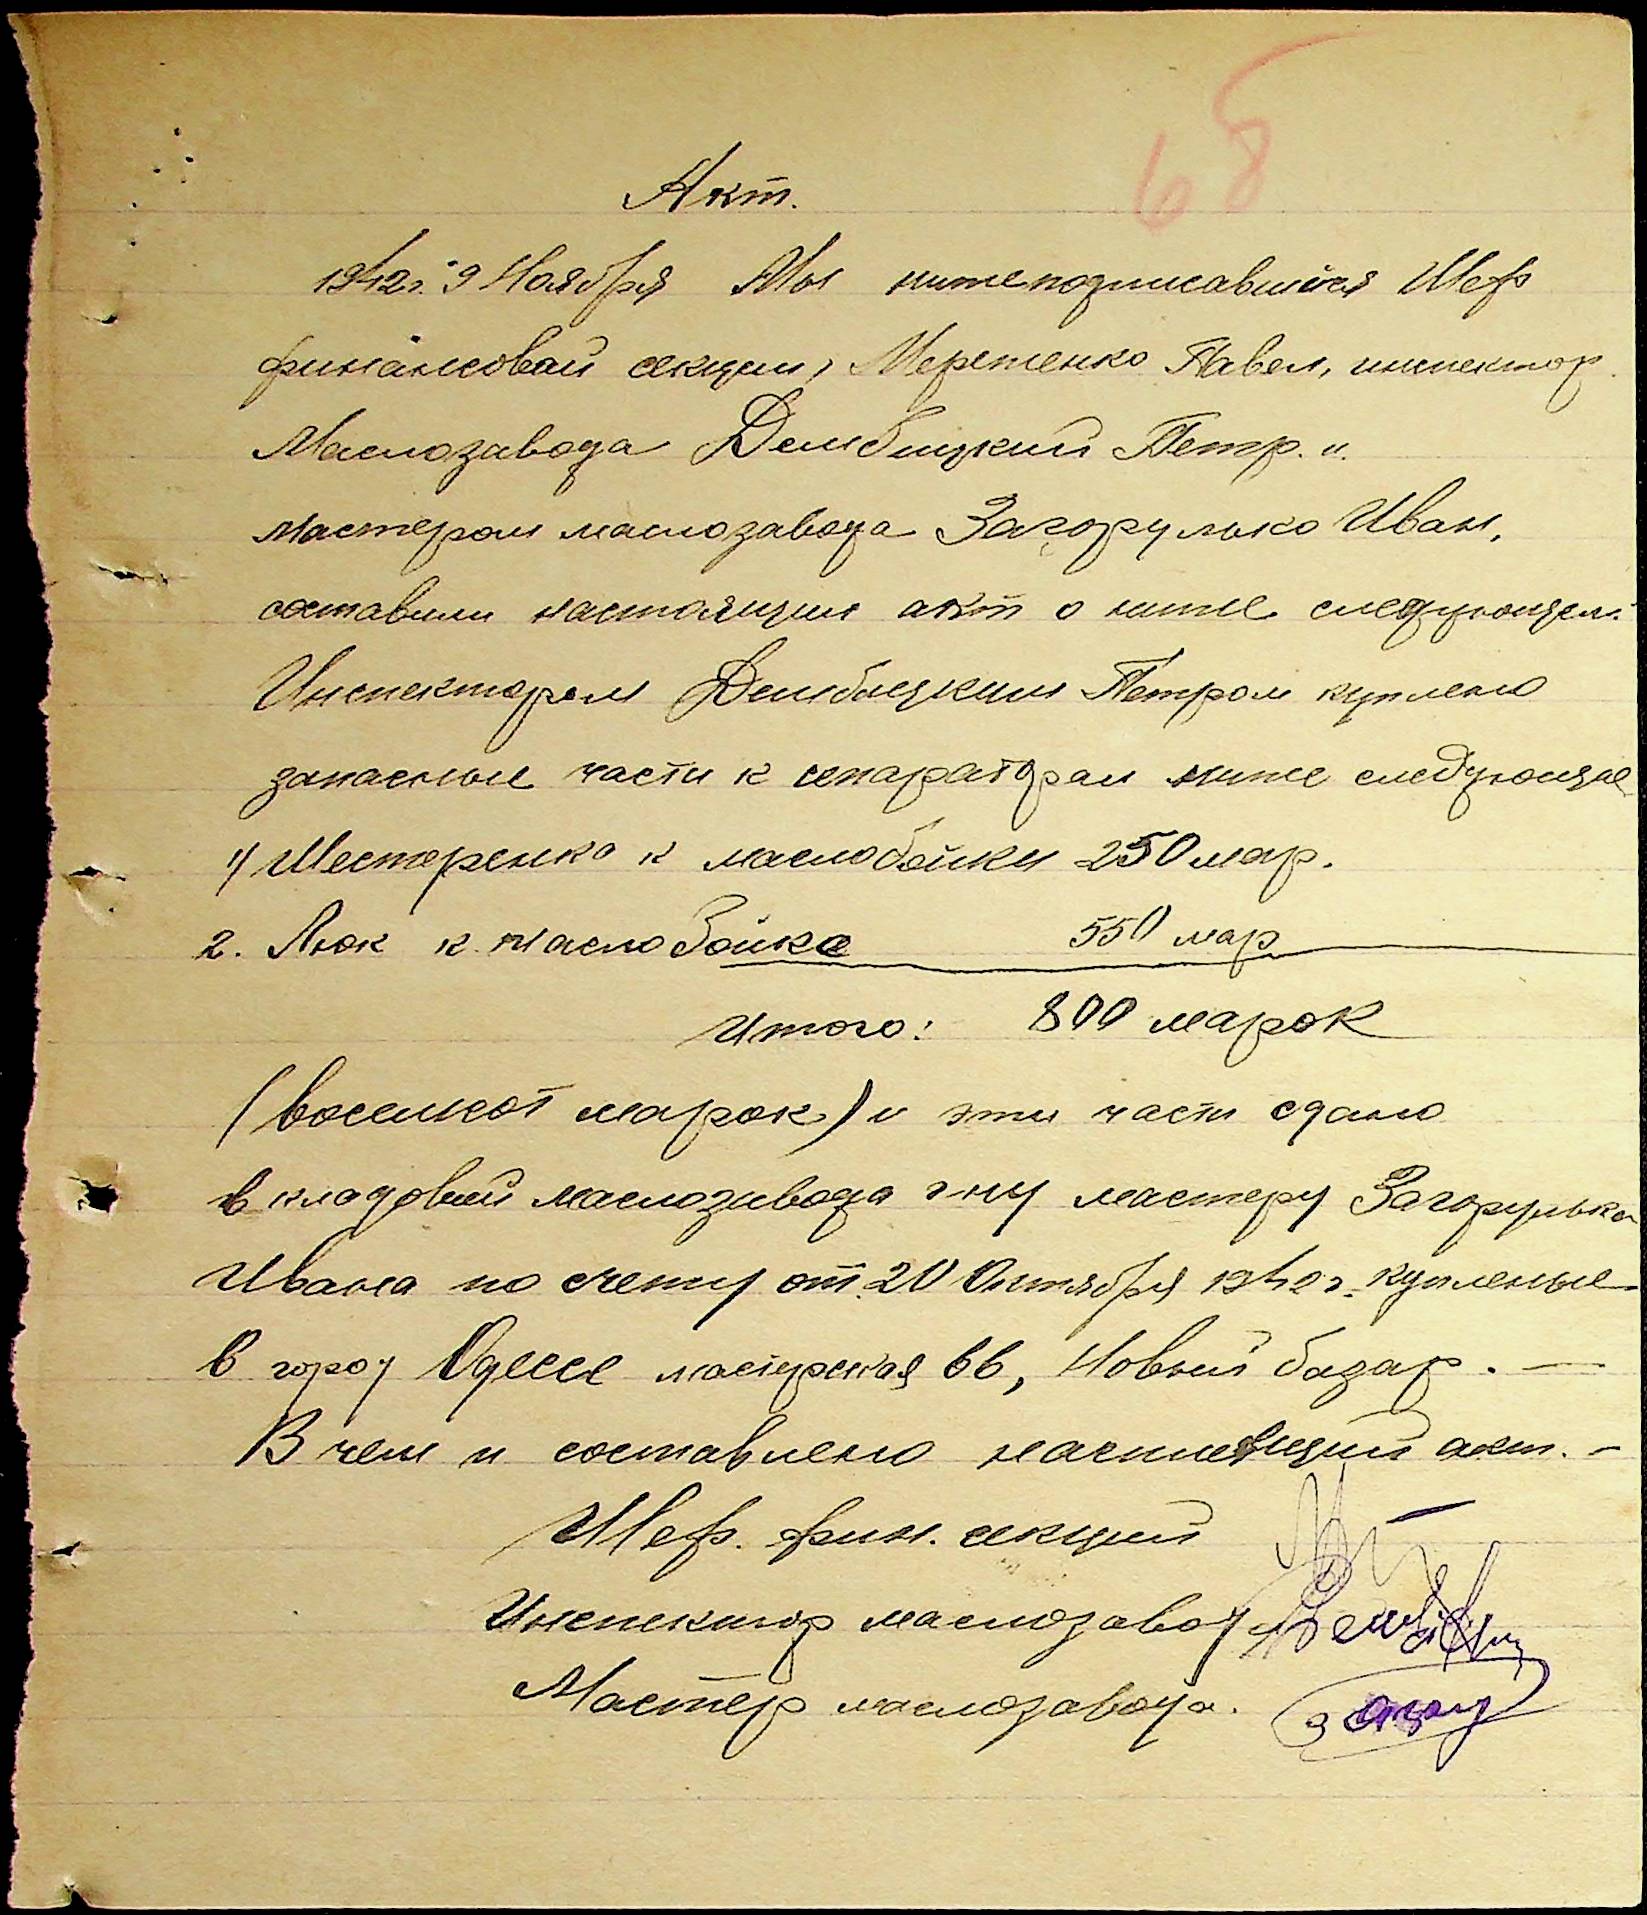 68
Акт.
1942 г. 9 Ноября Мы нижеподписавшися Шеф
финансовой секции, Мереженко Павел, инспектор
Маслозавода Дембицкий Петр. и.
мастером маслозавода Загорулько Иван,
составили настоящии акт о ниже следующем:
Инспектором Дембицким Петром куплено
запасные части к сепараторам ниже следующие
1) Шестеренка к маслобойки 250 мар.
2. Люк к маслобойке 550 мар
Итого: 800 марок
(восемсот марок) и эти части сдано
в кладовый маслозавода г-ну мастеру Загорулько
Ивана по счету от 20 Октября 1942 г. купленые
в город Одессе мастерская 66, Новый базар. —
В чем и составлено настоющий акт. —
Шеф. фин. секций
Инспектор маслозавода
Мастер маслозавода.